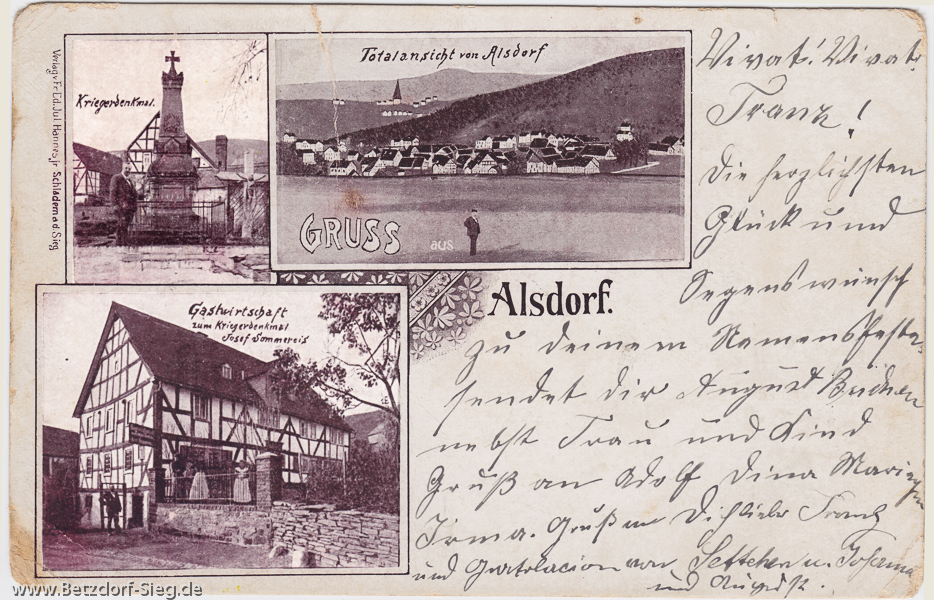 Verlag v. Fr. Ed. Jul. Hannes jr. Schladern a. d. Sieg
Kriegerdenkmal.
Totalansicht von Alsdorf
GRUSS aus
Alsdorf.
Gastwirtschaft
zum Kriegerdenkmal
Josef Sommereis
Vivat! Vivat
Franz!
Die herzlichsten
Glück und
Segenswünsch
zu deinem Namensfeste
sendet dir August
nebst Frau und Kind
Gruß an Adolf Dina
Irma. Gruß Dich lieber Franz
und Gratulacion von Settchen u. Johanna
und August.
www.Betzdorf-Sieg.de